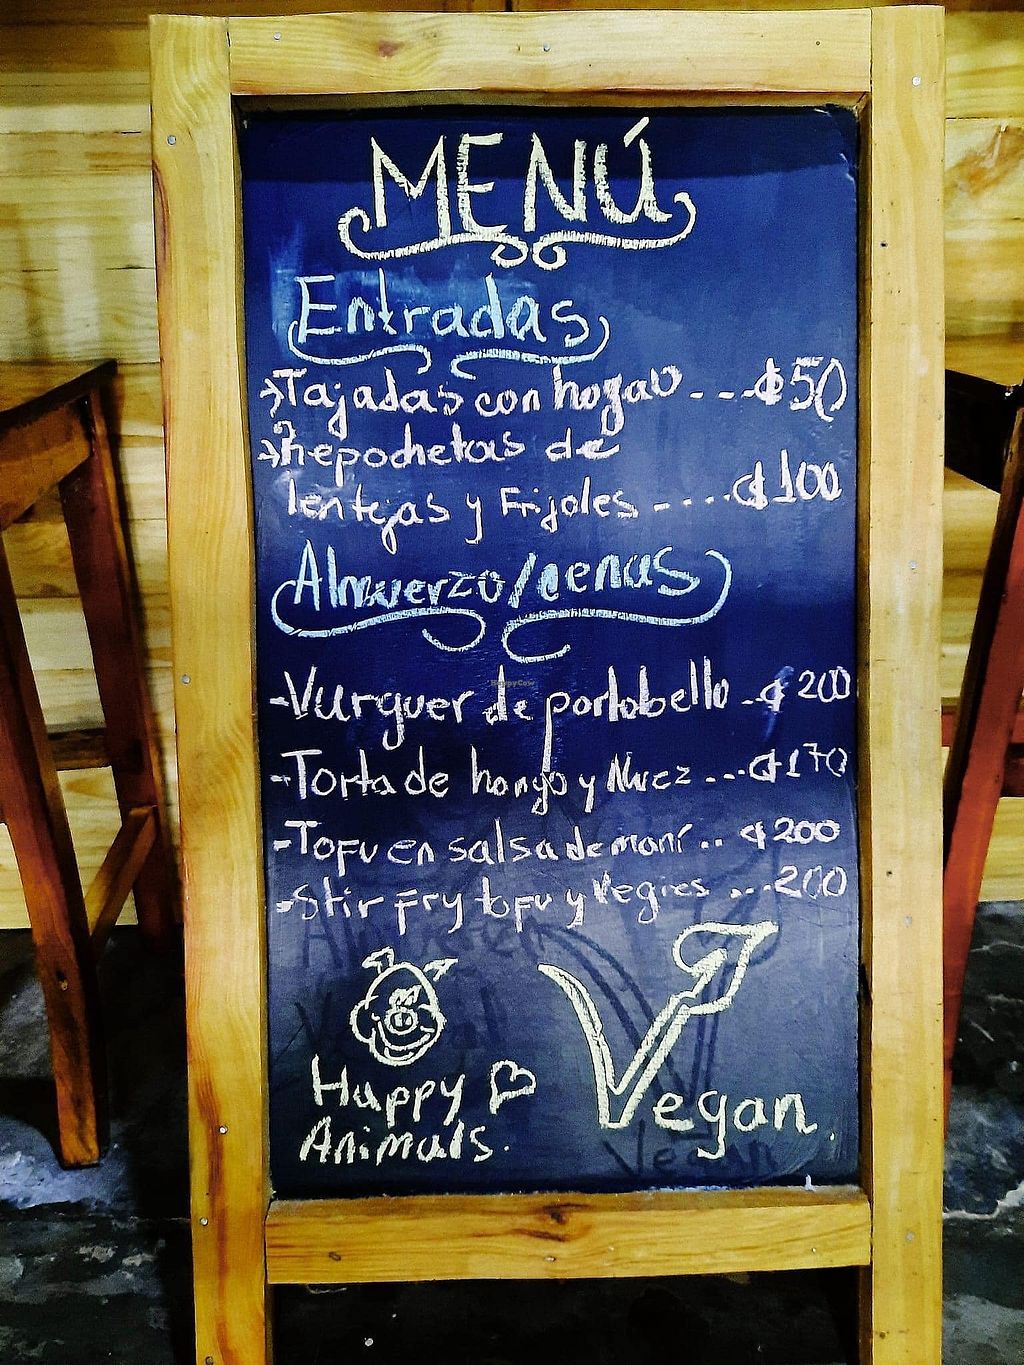 MENÚ
Entradas
→Tajadas con hogao ---₡50
→Repochetas de
lentejas y Frijoles ----₡100
Almuerzo/cenas
-Vurguer de portobello -₡200
-Torta de hongo y Nuez ---₡170
-Tofu en salsa de maní .. ₡200
-Stir Fry tofu y Vegies ...200
Happy ♡
Animals.
Vegan.
Vegan
HappyCow